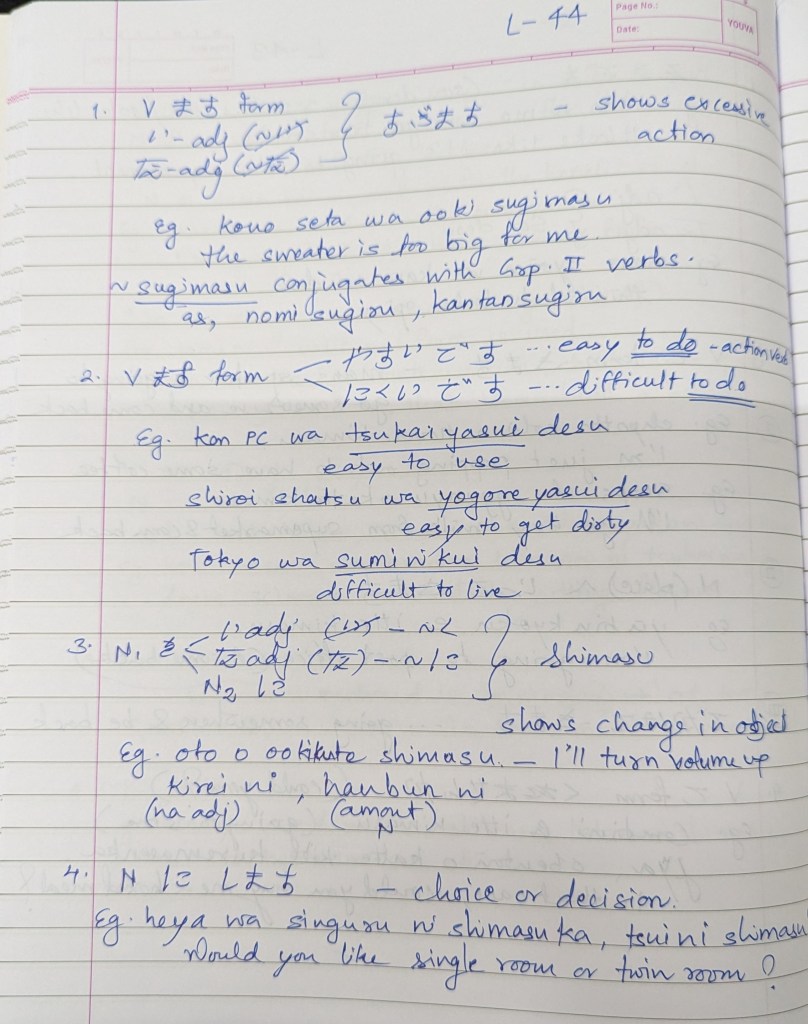 L-44
Page No.:
Date:
YOUVA
1. V ます form
い-adj (~い)
な-adj (~な) } すぎます - shows excessive action
Eg. kono seta wa ooki sugimasu
the sweater is too big for me.
~ sugimasu conjugates with Grp. II verbs.
as, nomi sugiru, kantan sugiru
2. V ます form < やすいです ... easy to do - action verb
にくいです --- difficult to do
Eg. kon PC wa tsukai yasui desu
easy to use
shiroi shatsu wa yogore yasui desu
easy to get dirty
Tokyo wa sumi ni kui desu
difficult to live
3. N₁ を < い adj (い) - ~く
な adj (な) - ~に
N₂ に } shimasu
shows change in object
Eg. oto o ookikute shimasu. - I'll turn volume up
kirei ni, hanbun ni
(na adj) (amout)
N
4. N に します - choice or decision.
Eg. heya wa singuru ni shimasu ka, tsui ni shimasu
Would you like single room or twin room?